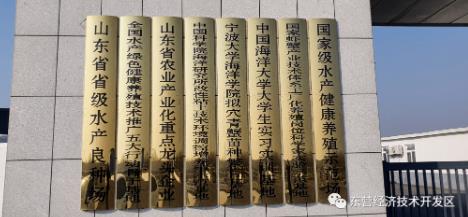 山东省省级水产良种场
全国水产绿色健康养殖技术推广五大行动
山东省农业产业化重点龙头企业
中国科学院海洋研究所
宁波大学海洋学院拟穴青蟹苗种
中国海洋大学大学生实习实训基地
国家虾蟹产业技术体系
国家级水产健康养殖示范场
东营经济技术开发区